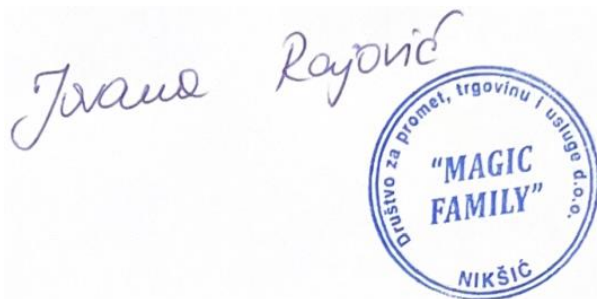 Jovana Rajović
Društvo za promet, trgovinu i usluge d.o.o.
"MAGIC
FAMILY"
NIKŠIĆ